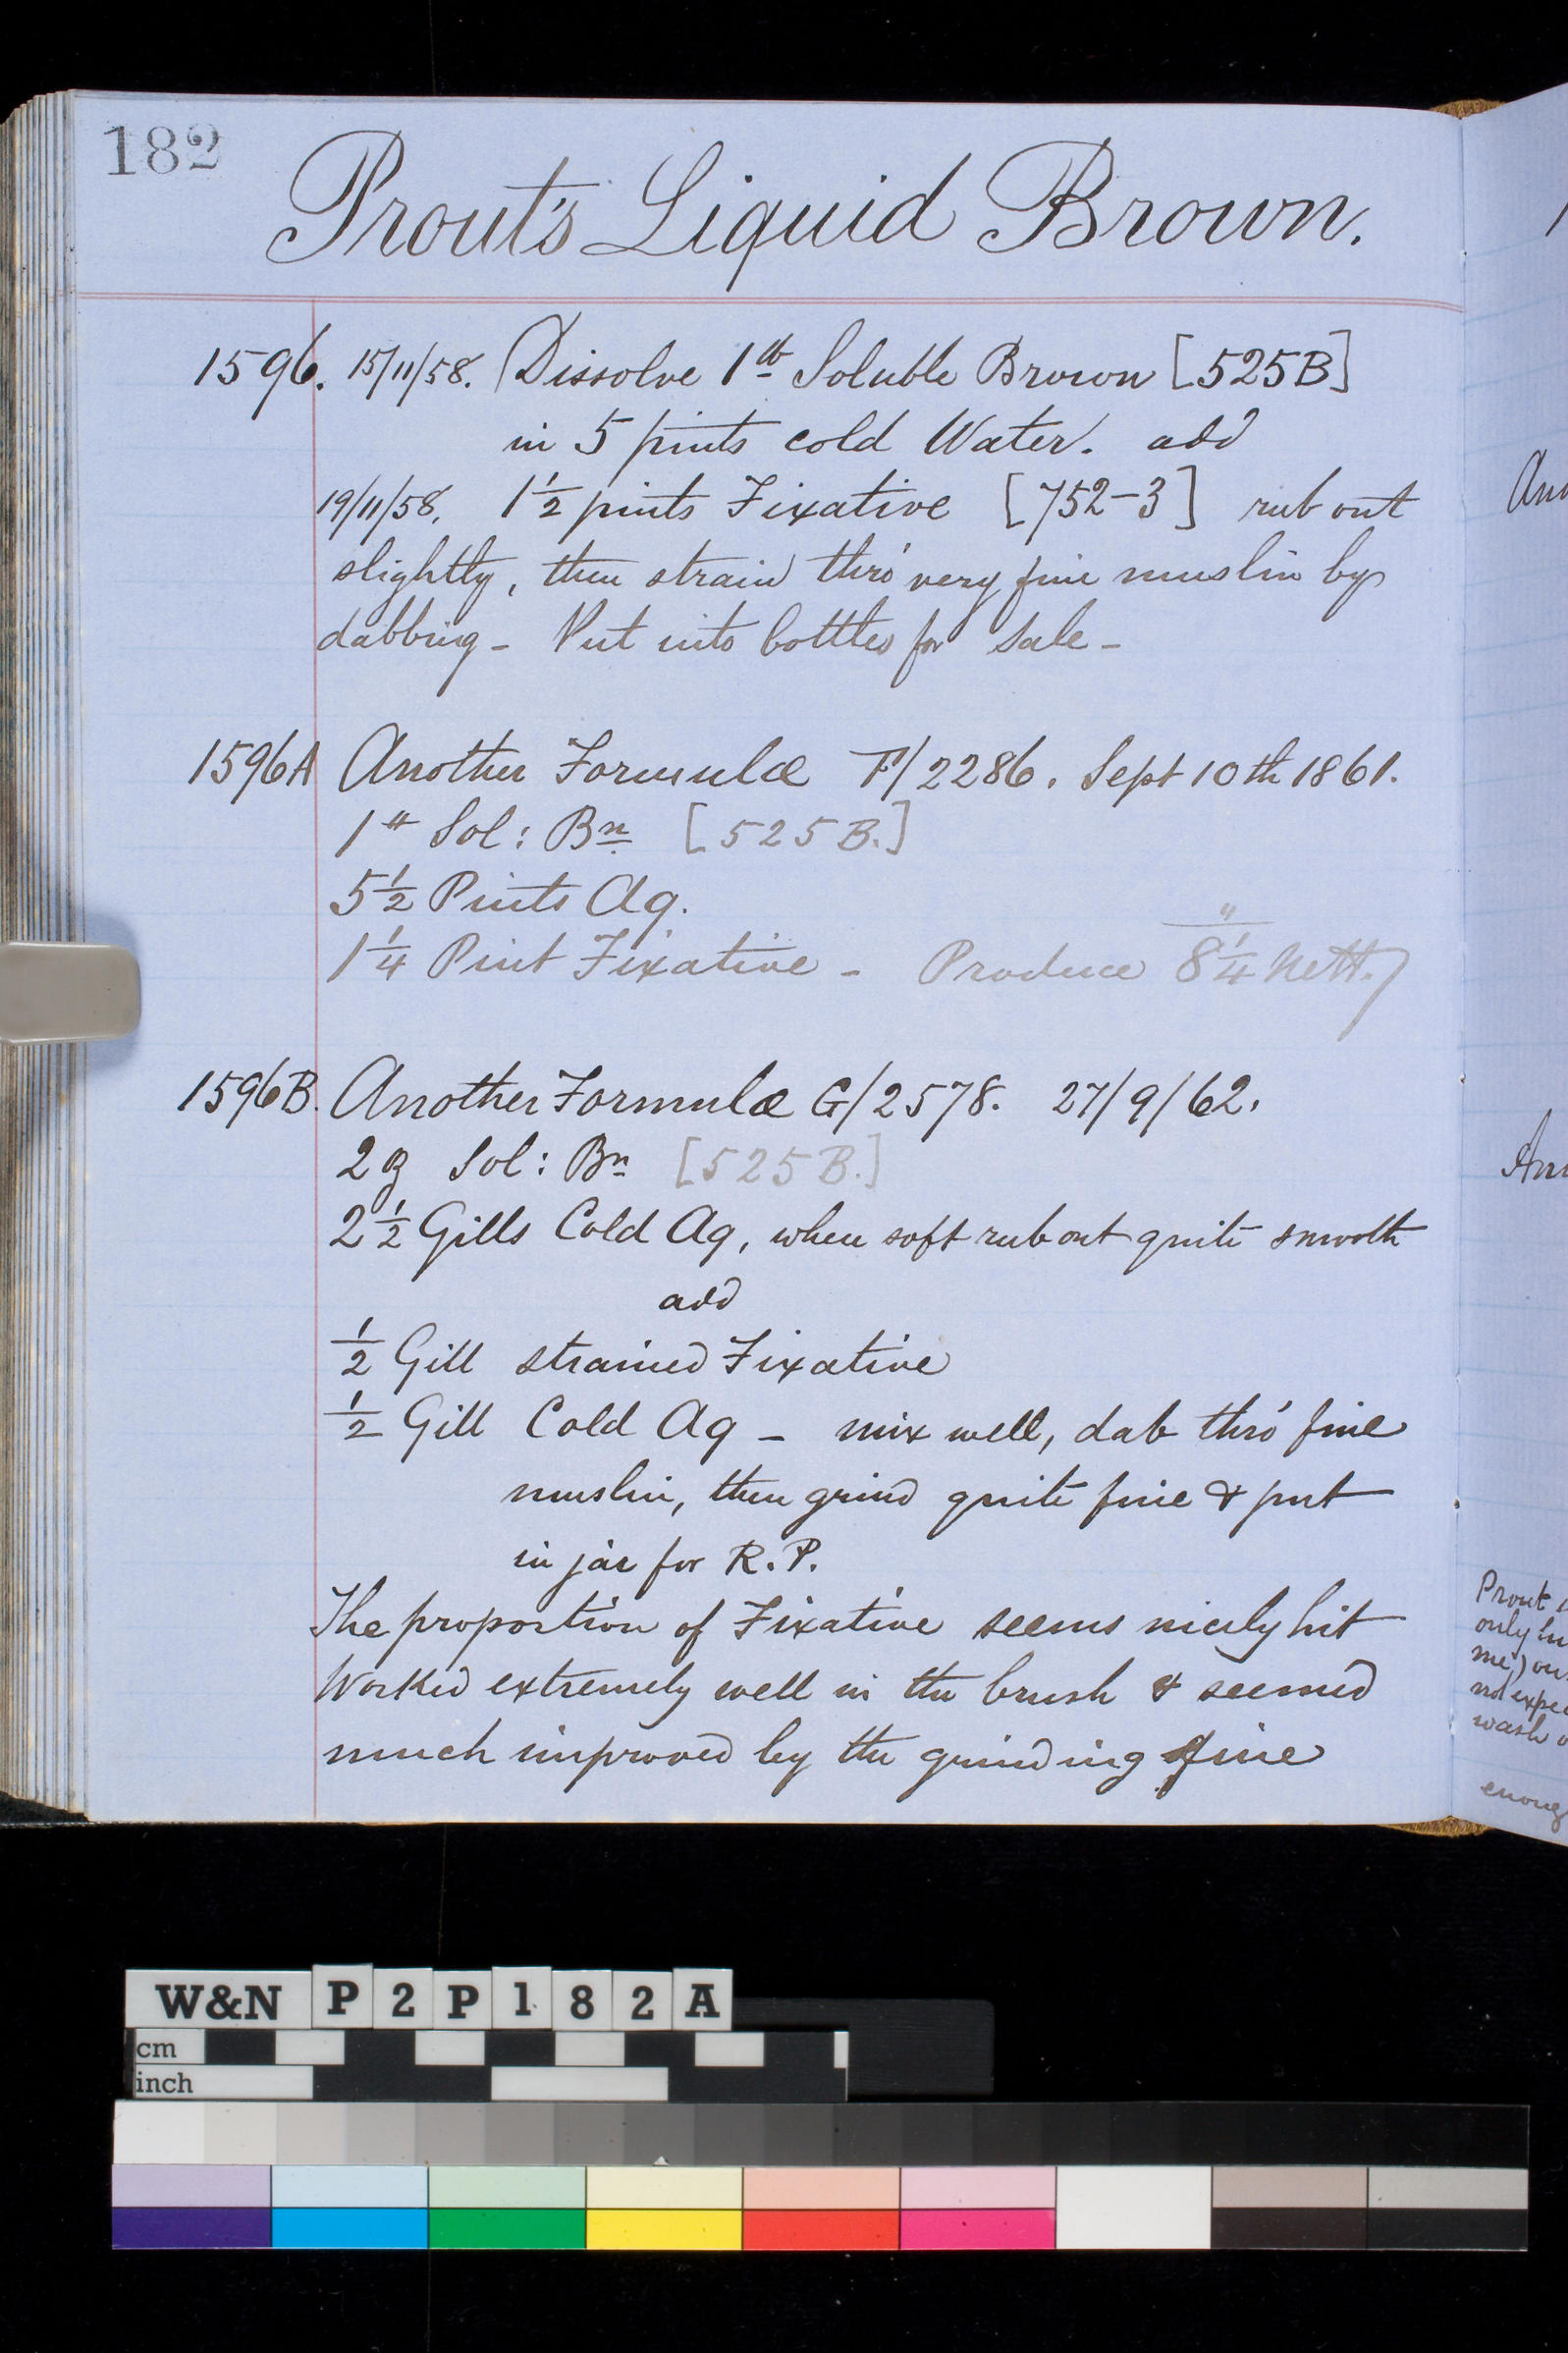 182
Prout's Liquid Brown.
1596. 15/11/58. Dissolve 1 lb Soluble Brown [525B]
in 5 pints cold Water. add
19/11/58. 1½ pints Fixative [752-3] rub out
slightly, then strain thro' very fine muslin by
dabbing - Put into bottles for sale -
1596A Another Formulæ F/2286. Sept 10th 1861.
1 # Sol: Bn [525B.]
5½ Pints Aq.
1¼ Pint Fixative - Produce 8¼ " Nett.
1596B. Another Formulæ G/2578. 27/9/62.
2 ℥ Sol: Bn [525B.]
2½ Gills Cold Aq, when soft rub out quite smooth
add
½ Gill strained Fixative
½ Gill Cold Aq - mix well, dab thro' fine
muslin, then grind quite fine & put
in jar for R.P.
The proportion of Fixative seems nicely hit
Worked extremely well in the brush & seemed
much improved by the grinding fine
Prout
only
me) 
wash
W&N P2P182A
cm
inch